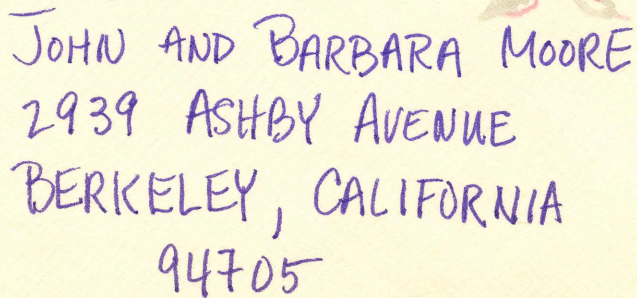 JOHN AND BARBARA MOORE
2939 ASHBY AVENUE
BERKELEY, CALIFORNIA
94705